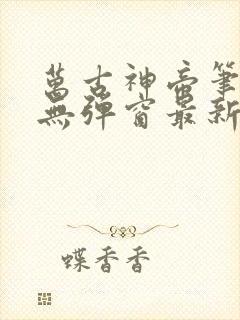 萬古神帝筆
無彈窗最新
蝶香香